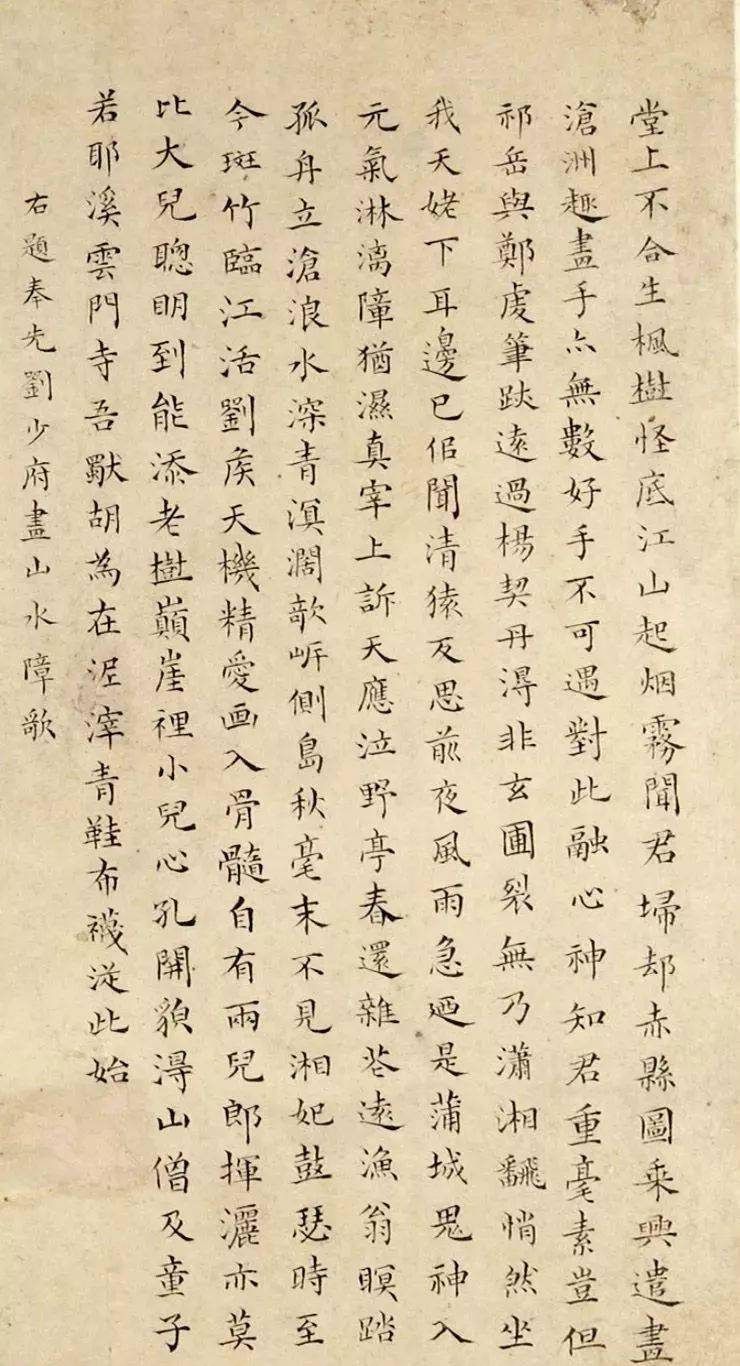 堂上不合生楓樹怪底江山起烟霧聞君埽却赤縣圖乘興遣畫
滄洲趣畫手亦無數好手不可遇對此融心神知君重毫素豈但
祁岳與鄭虔筆跡遠過楊契丹得非玄圃裂無乃瀟湘飜悄然坐
我天姥下耳邊已佀聞清猿反思前夜風雨急迺是蒲城鬼神入
元氣淋漓障猶濕真宰上訴天應泣野亭春還雜花遠漁翁暝踏
孤舟立滄浪水深青溟濶欹岸側島秋毫末不見湘妃鼓瑟時至
今斑竹臨江活劉侯天機精愛画入骨髓自有兩兒郎揮灑亦莫
比大兒聰明到能添老樹巔崖裡小兒心孔開貌得山僧及童子
若耶溪雲門寺吾獨胡為在泥滓青鞋布襪從此始
右題奉先劉少府畫山水障歌